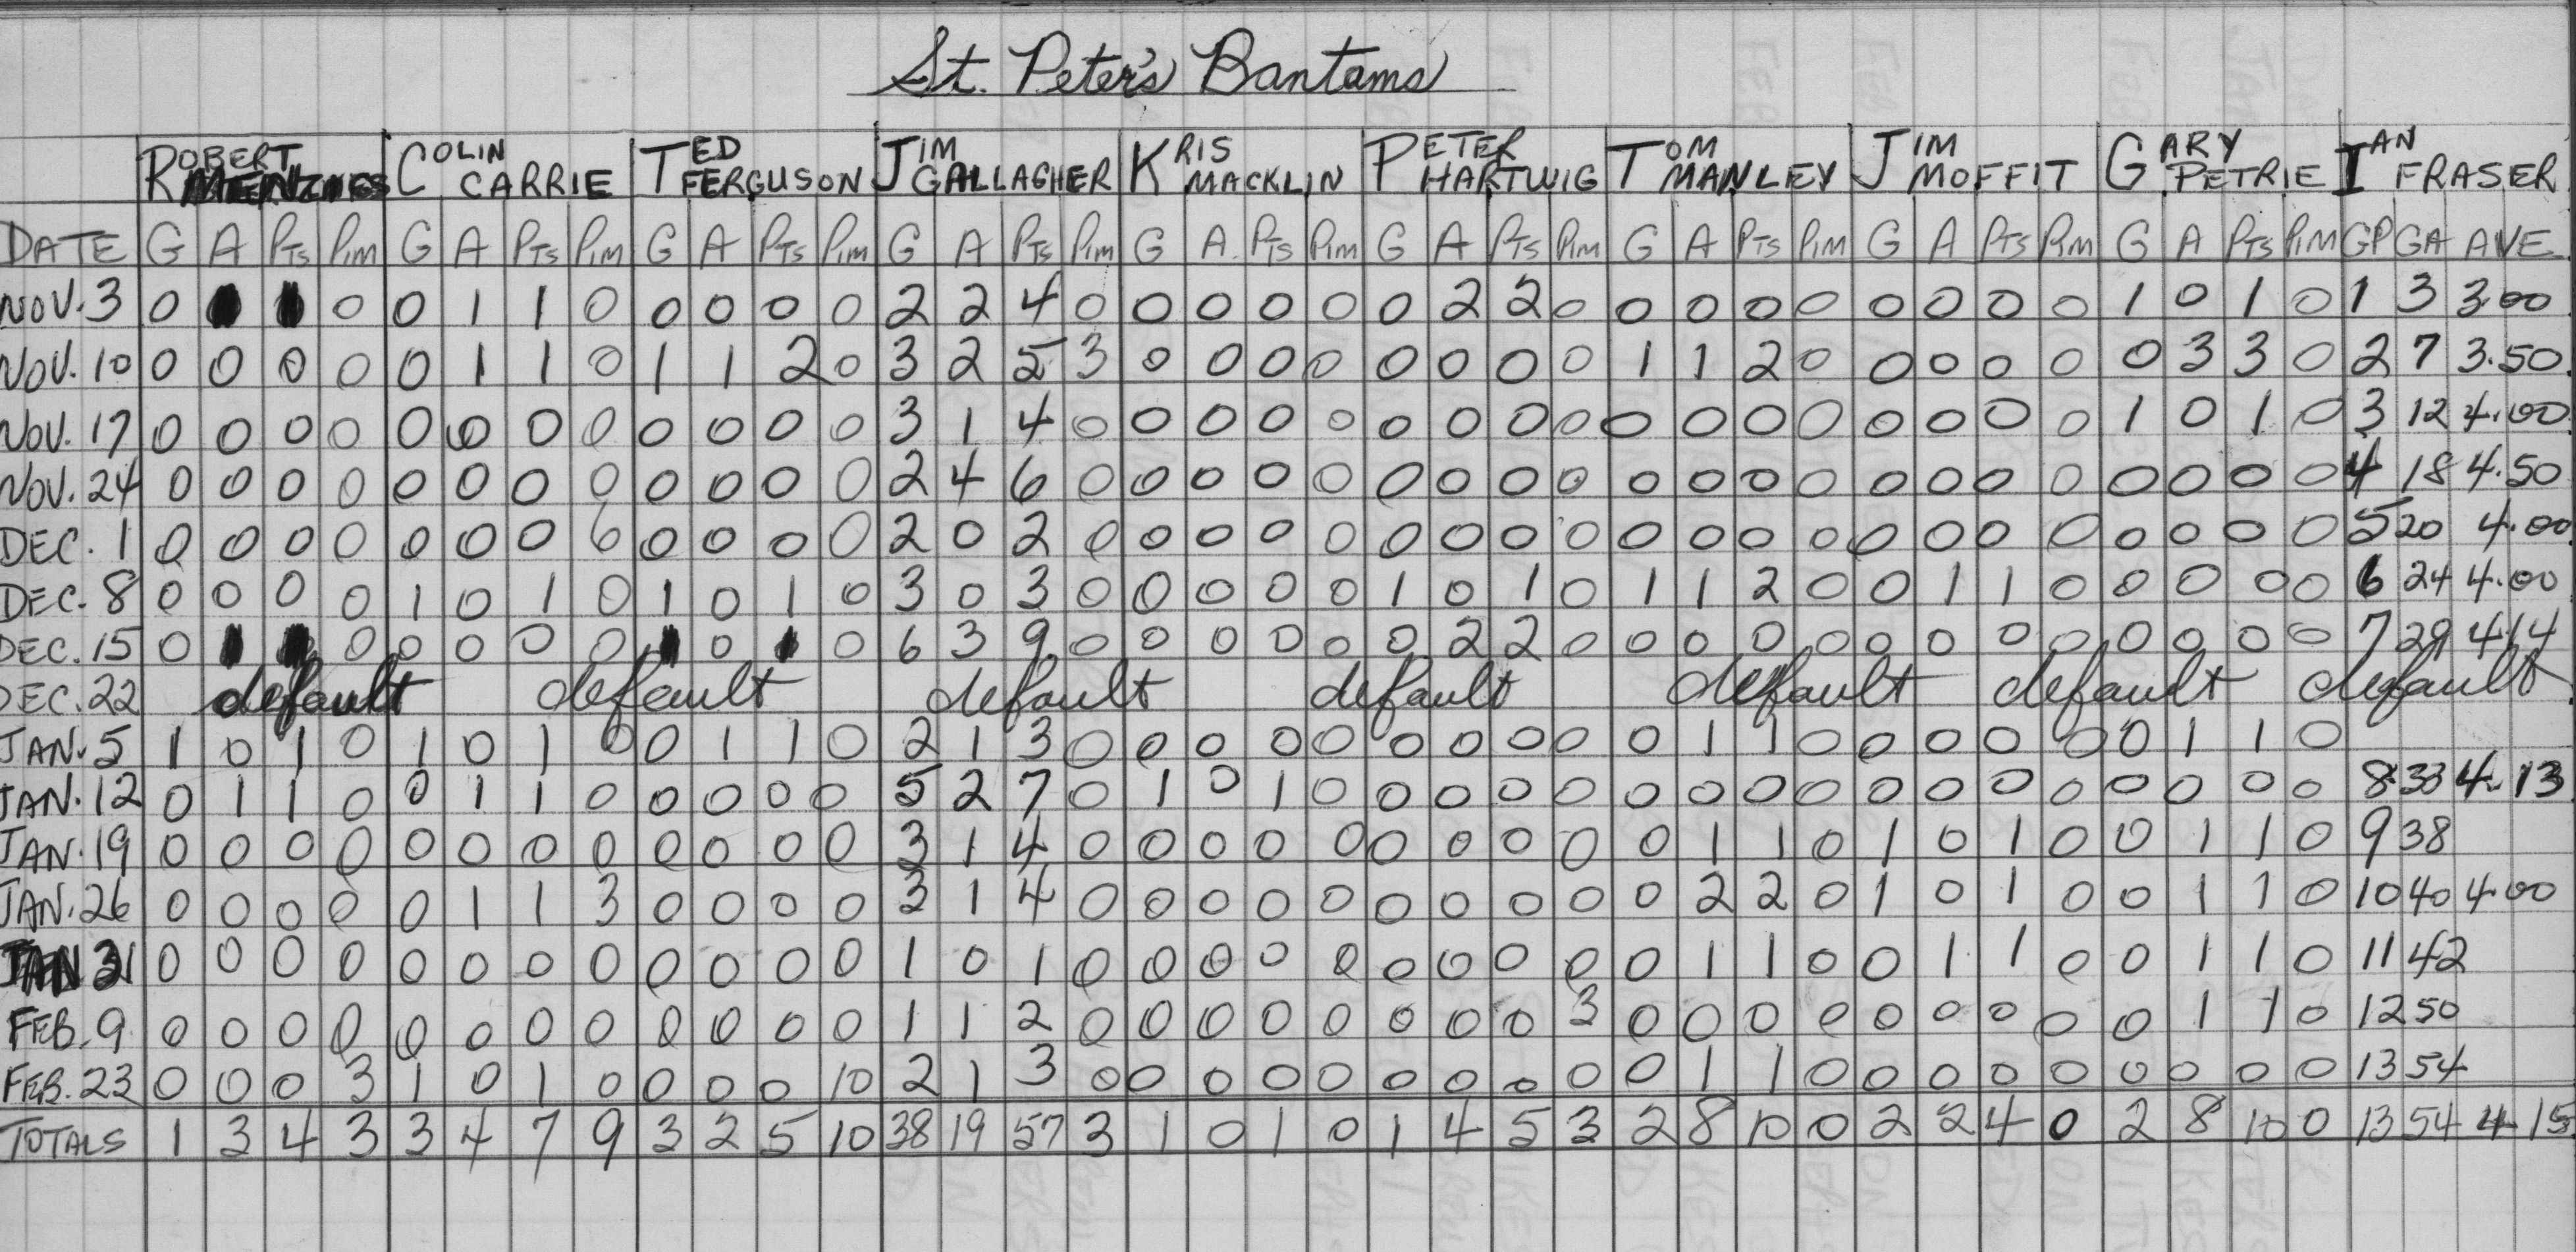 St. Peter's Bantams
ROBERT COLIN TED JIM KRIS PETER TOM JIM GARY IAN
CARRIE FERGUSON GALLAGHER MACKLIN HARTWIG MANLEY MOFFIT PETRIE FRASER
DATE G A PTS PIM G A PTS PIM G A PTS PIM G A PTS PIM G A. PTS PIM G A PTS PIM G A PTS PIM G A PTS PIM G A PTS PIM GP GA AVE.
NOV. 3 0 1 1 0 0 1 1 0 0 0 0 0 2 2 4 0 0 0 0 0 0 2 2 0 0 0 0 0 0 0 0 0 1 0 1 0 1 3 3.00
NOV. 10 0 0 0 0 0 1 1 0 1 1 2 0 3 2 5 3 0 0 0 0 0 0 0 0 1 1 2 0 0 0 0 0 0 3 3 0 2 7 3.50
NOV. 17 0 0 0 0 0 0 0 0 0 0 0 0 3 1 4 0 0 0 0 0 0 0 0 0 0 0 0 0 0 0 0 0 1 0 1 0 3 12 4.00
NOV. 24 0 0 0 0 0 0 0 0 0 0 0 0 2 4 6 0 0 0 0 0 0 0 0 0 0 0 0 0 0 0 0 0 0 0 0 0 4 18 4.50
DEC. 1 0 0 0 0 0 0 0 6 0 0 0 0 2 0 2 0 0 0 0 0 0 0 0 0 0 0 0 0 0 0 0 0 0 0 0 0 5 20 4.00
DEC. 8 0 0 0 0 1 0 1 0 1 0 1 0 3 0 3 0 0 0 0 0 1 0 1 0 1 1 2 0 0 1 1 0 0 0 0 0 6 24 4.00
DEC. 15 0 1 1 0 0 0 0 0 1 0 1 0 6 3 9 0 0 0 0 0 0 2 2 0 0 0 0 0 0 0 0 0 0 0 0 0 7 29 4.14
DEC. 22 default default default default default default default
JAN. 5 1 0 1 0 1 0 1 0 0 1 1 0 2 1 3 0 0 0 0 0 0 0 0 0 0 1 1 0 0 0 0 0 0 1 1 0
JAN. 12 0 1 1 0 0 1 1 0 0 0 0 0 5 2 7 0 1 0 1 0 0 0 0 0 0 0 0 0 0 0 0 0 0 0 0 0 8 33 4.13
JAN. 19 0 0 0 0 0 0 0 0 0 0 0 0 3 1 4 0 0 0 0 0 0 0 0 0 0 1 1 0 1 0 1 0 0 1 1 0 9 38
JAN. 26 0 0 0 0 0 1 1 3 0 0 0 0 3 1 4 0 0 0 0 0 0 0 0 0 0 2 2 0 1 0 1 0 0 1 1 0 10 40 4.00
JAN 31 0 0 0 0 0 0 0 0 0 0 0 0 1 0 1 0 0 0 0 0 0 0 0 0 0 1 1 0 0 1 1 0 0 1 1 0 11 42
FEB. 9 0 0 0 0 0 0 0 0 0 0 0 0 1 1 2 0 0 0 0 0 0 0 0 3 0 0 0 0 0 0 0 0 0 1 1 0 12 50
FEB. 23 0 0 0 3 1 0 1 0 0 0 0 10 2 1 3 0 0 0 0 0 0 0 0 0 0 1 1 0 0 0 0 0 0 0 0 0 13 54
TOTALS 1 3 4 3 3 4 7 9 3 2 5 10 38 19 57 3 1 0 1 0 1 4 5 3 2 8 10 0 2 2 4 0 2 8 10 0 13 54 4.15